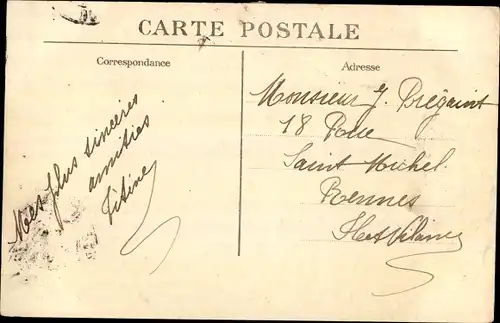 CARTE POSTALE
Correspondance
Adresse
Mes plus sincères
amitiés
Titine
Monsieur J. Brégaint
18 Rue
Saint Michel
Rennes
Ile et Vilaine